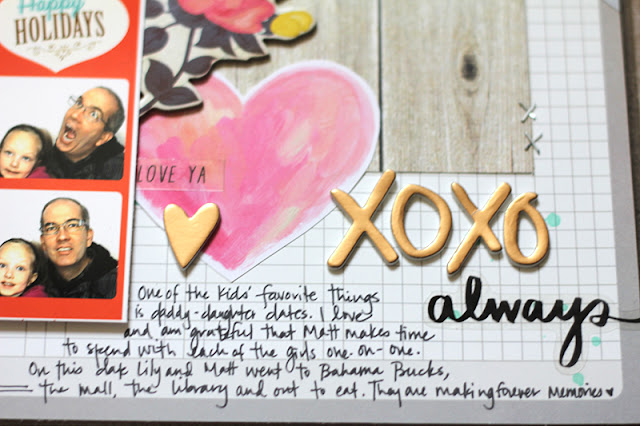 Happy
HOLIDAYS
LOVE YA
XOXO
always
One of the kids' favorite things
is daddy-daughter dates. I love
and am grateful that Matt makes time
to spend with each of the girls one-on-one.
On this date Lily and Matt went to Bahama Bucks,
the mall, the library and out to eat. They are making forever memories